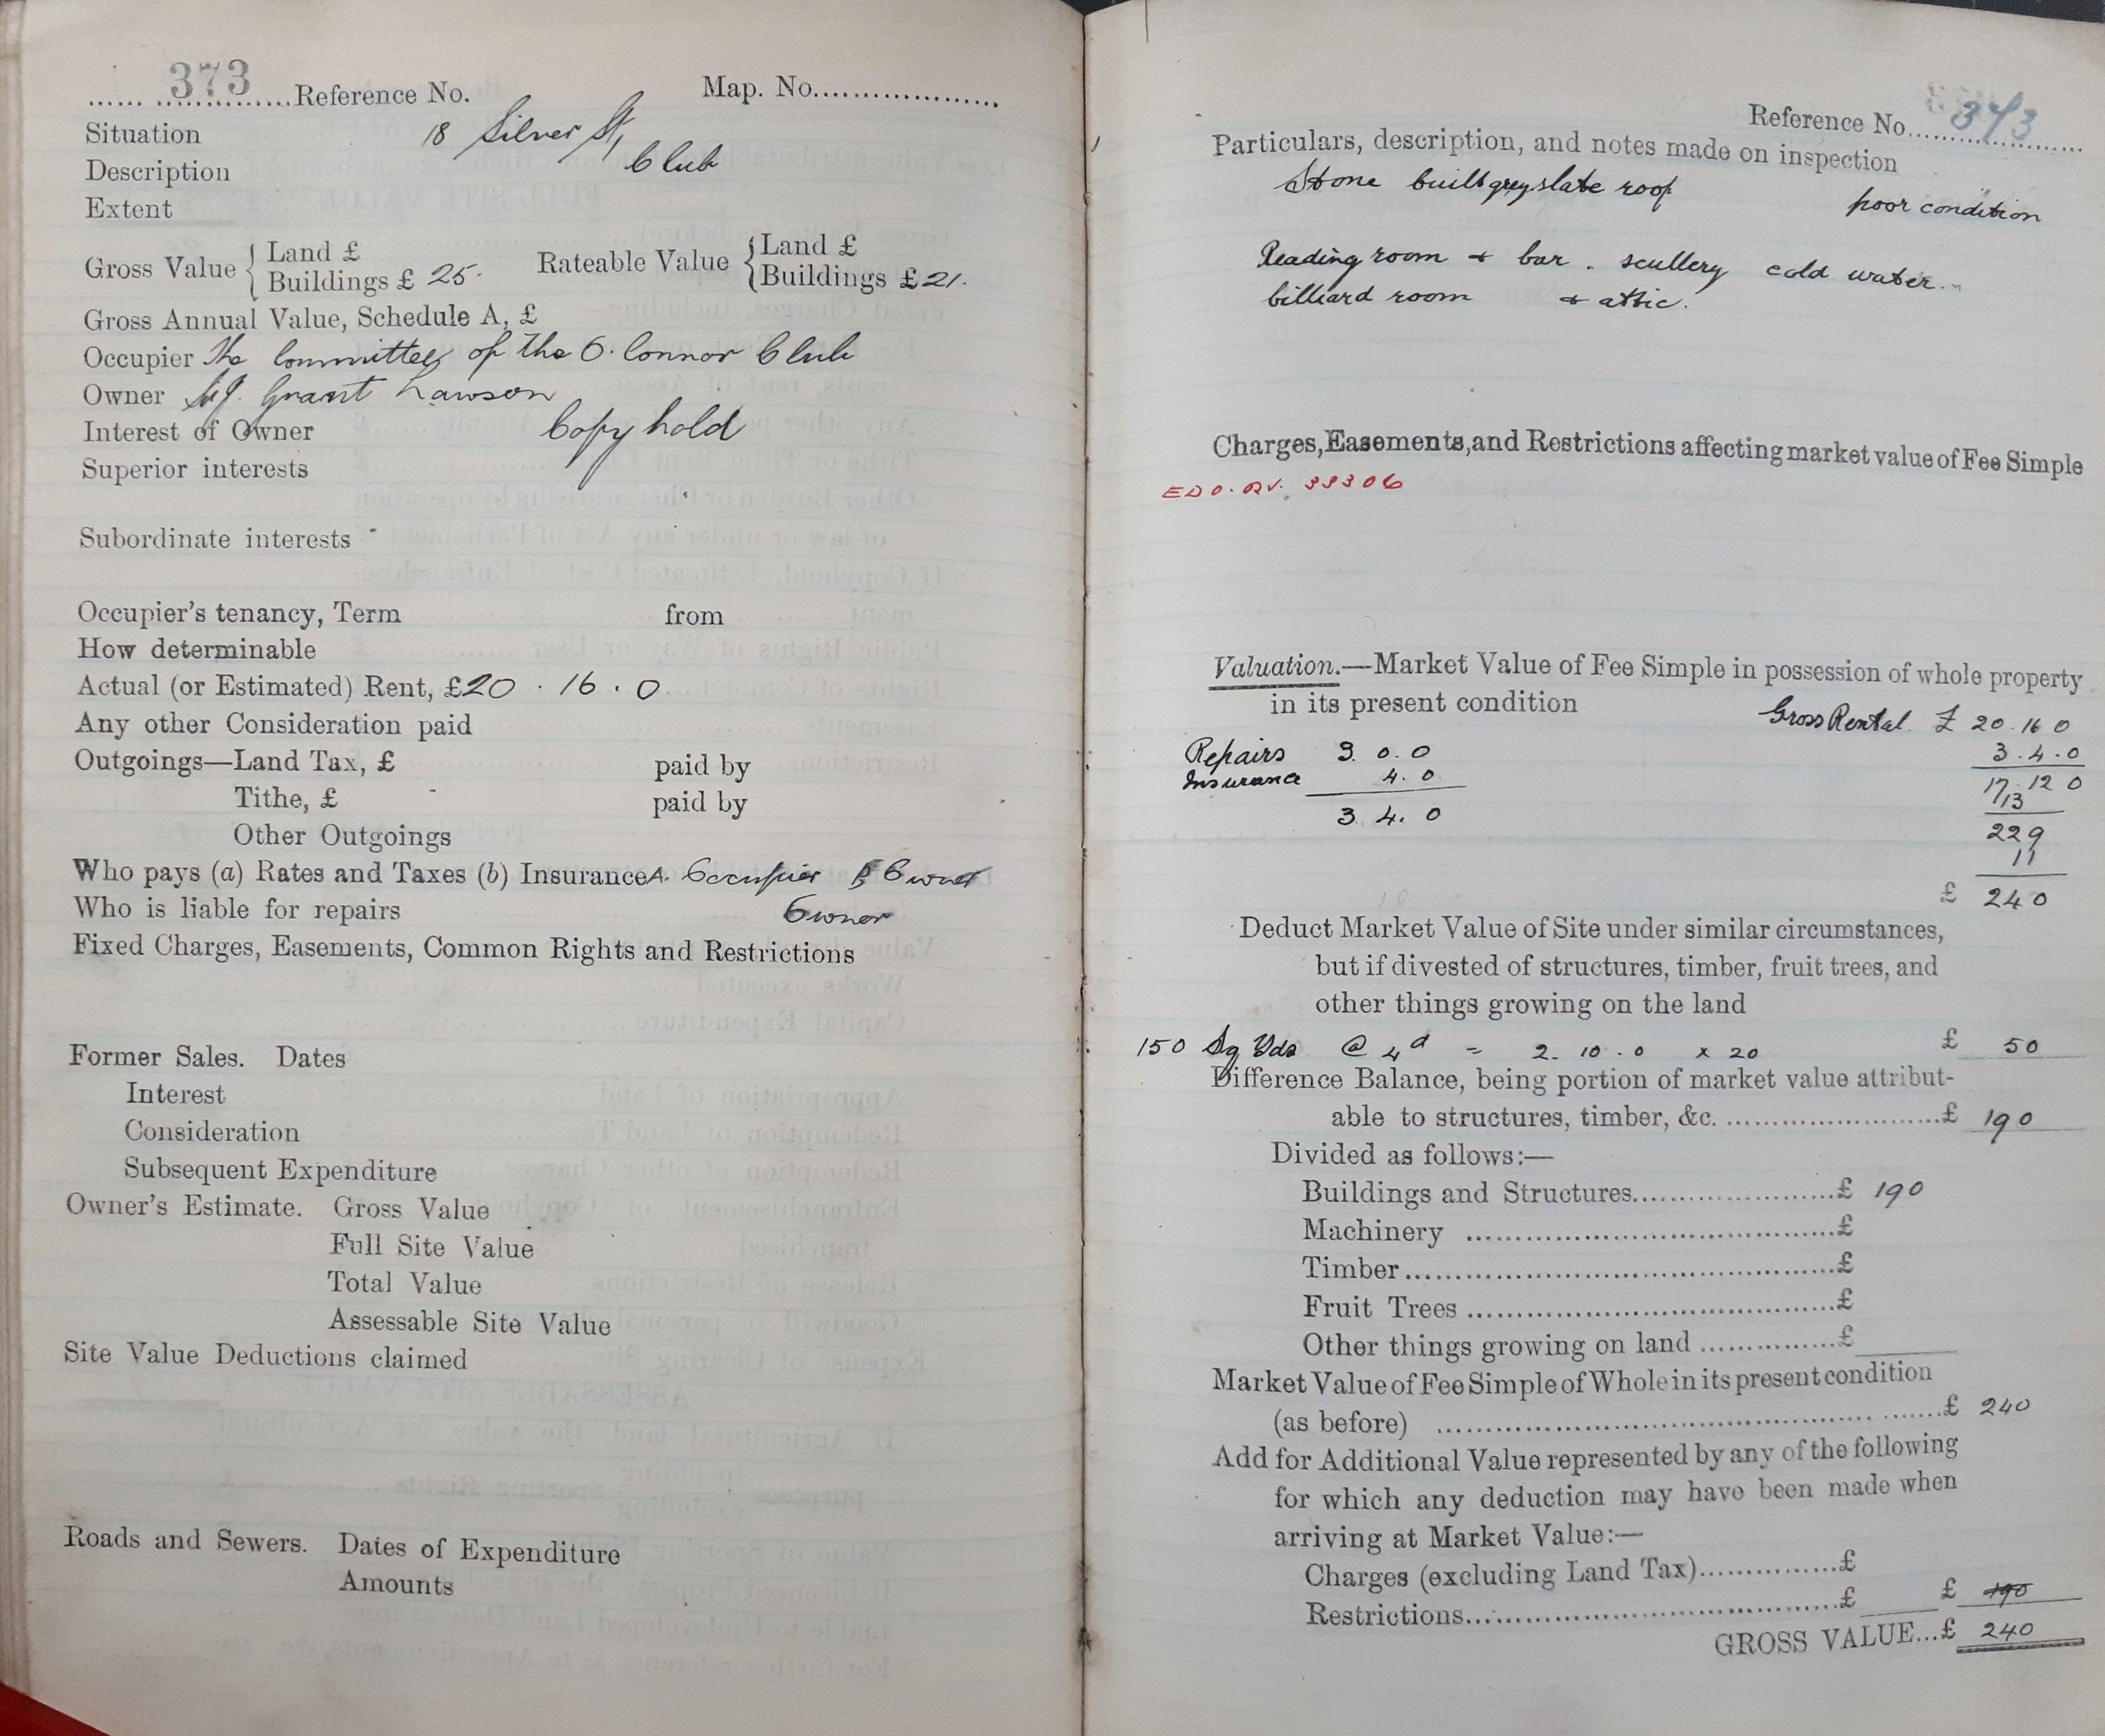 373 Reference No. Map. No.
Situation 18 Silver St,
Description Club
Extent
Gross Value { Land £ Rateable Value { Land £
Buildings £ 25. Buildings £ 21.
Gross Annual Value, Schedule A, £
Occupier The Committee of the O'Connor Club
Owner Grant Lawson
Interest of Owner Copyhold
Superior interests
Subordinate interests
Occupier's tenancy, Term from
How determinable
Actual (or Estimated) Rent, £20 . 16 . 0
Any other Consideration paid
Outgoings—Land Tax, £ paid by
Tithe, £ paid by
Other Outgoings
Who pays (a) Rates and Taxes (b) Insurance A. Occupier B Owner
Who is liable for repairs Owner
Fixed Charges, Easements, Common Rights and Restrictions
Former Sales. Dates
Interest
Consideration
Subsequent Expenditure
Owner's Estimate. Gross Value
Full Site Value
Total Value
Assessable Site Value
Site Value Deductions claimed
Roads and Sewers. Dates of Expenditure
Amounts
Reference No. 373
Particulars, description, and notes made on inspection
Stone built grey slate roof poor condition
Reading room + bar . scullery cold water.
billiard room + attic.
Charges, Easements, and Restrictions affecting market value of Fee Simple
33306
Valuation.—Market Value of Fee Simple in possession of whole property
in its present condition
Gross Rental £ 20.16 0
Repairs 3. 0. 0 3.4.0
Insurance 4. 0 17.12 0
3. 4. 0 13
229
11
£ 240
Deduct Market Value of Site under similar circumstances,
but if divested of structures, timber, fruit trees, and
other things growing on the land
150 Sq Yds @ 4d = 2. 10. 0 x 20 £ 50
Difference Balance, being portion of market value attribut-
able to structures, timber, &c. £ 190
Divided as follows:—
Buildings and Structures £ 190
Machinery £
Timber £
Fruit Trees £
Other things growing on land £
Market Value of Fee Simple of Whole in its present condition
(as before) £ 240
Add for Additional Value represented by any of the following
for which any deduction may have been made when
arriving at Market Value:—
Charges (excluding Land Tax) £
Restrictions £ £ 190
GROSS VALUE...£ 240